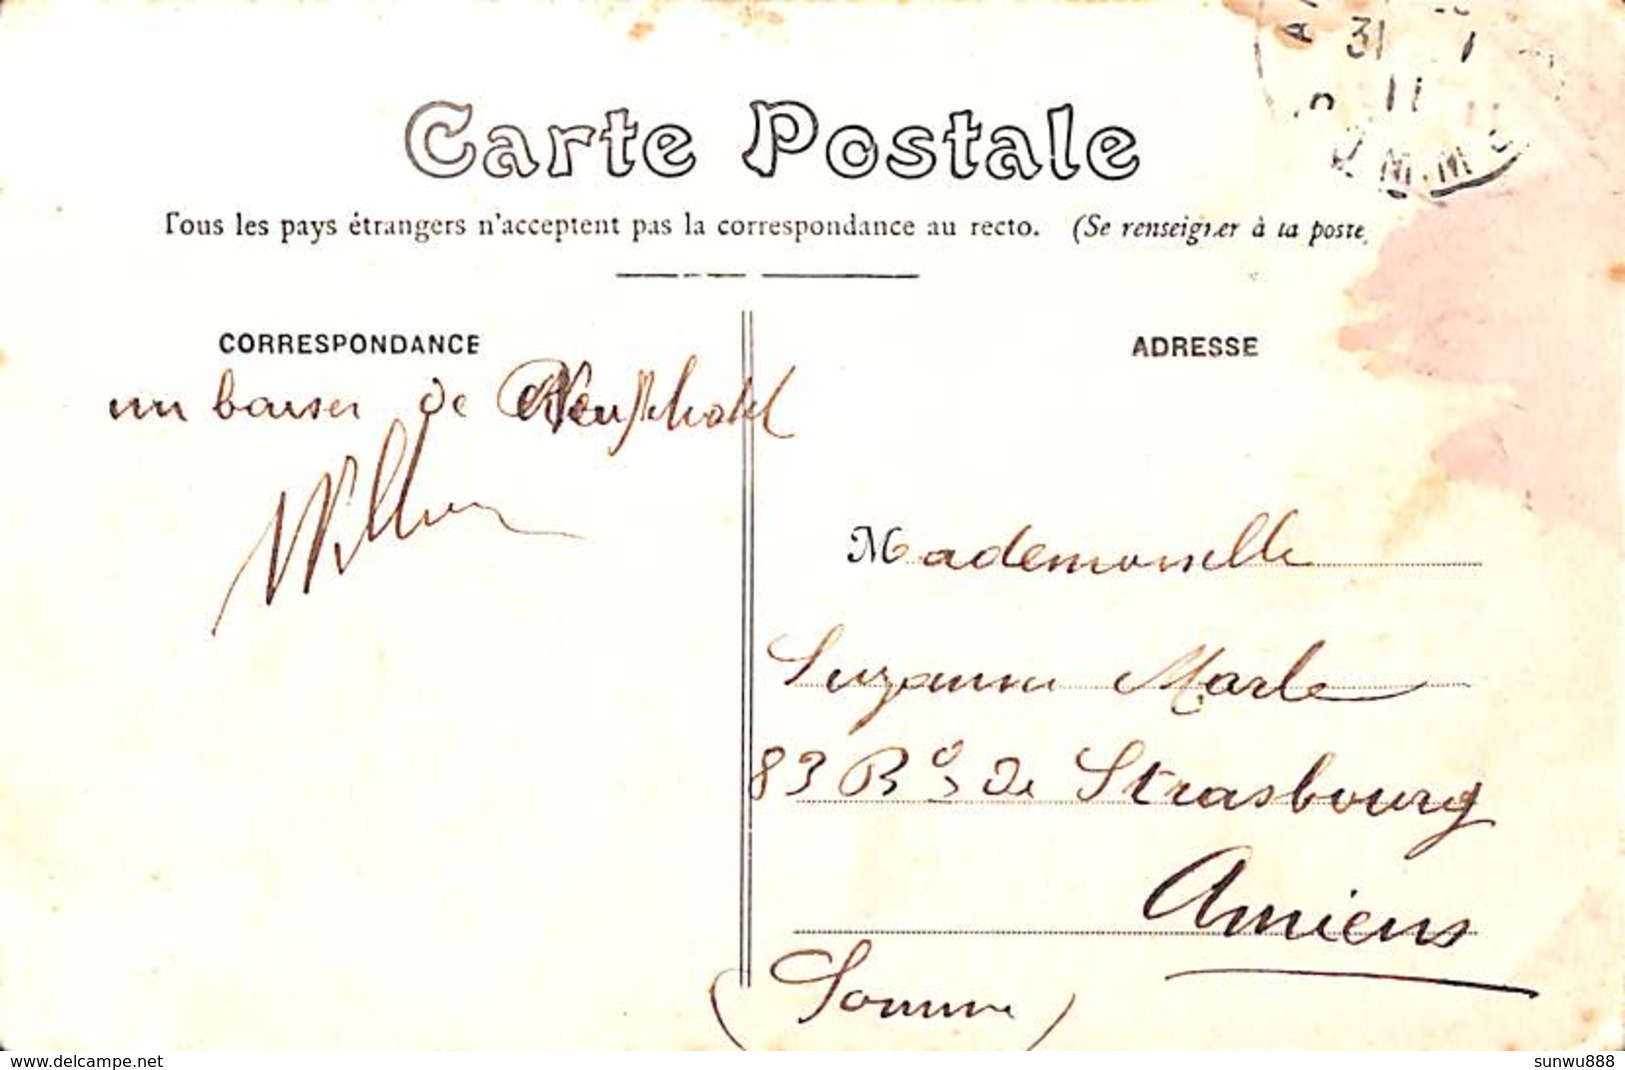 31 1
11 11
Carte Postale
Tous les pays étrangers n'acceptent pas la correspondance au recto. (Se renseigner à la poste
CORRESPONDANCE
un baiser de
ADRESSE
Mademoiselle
Suzanne Marle
83 Bd de Strasbourg
Amiens
(Somme)
https://www.delcampe.net
sunwu888